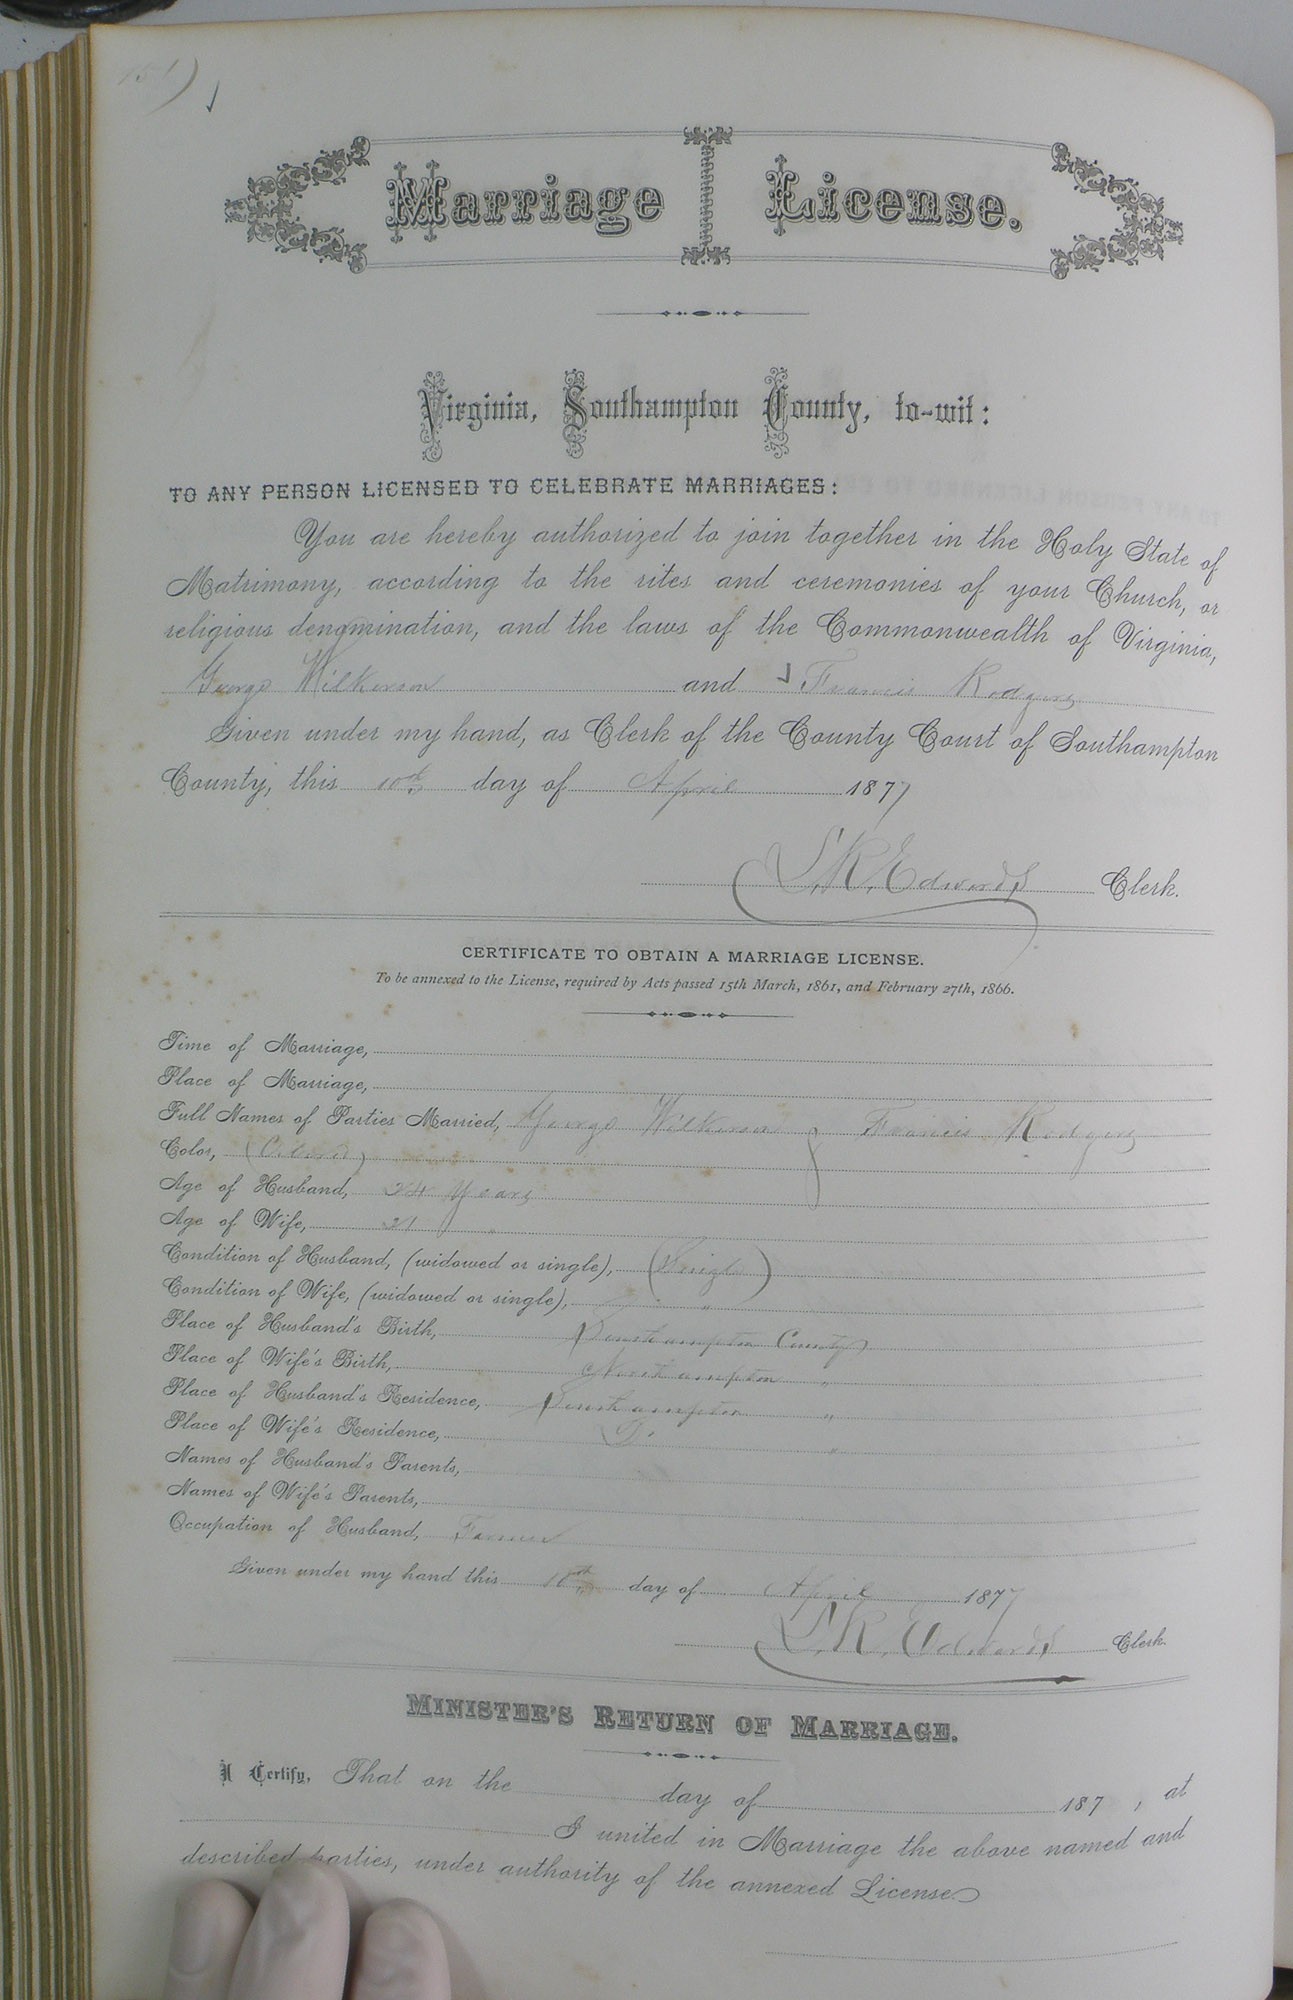 Marriage License.
Virginia, Southampton County, to-wit:
TO ANY PERSON LICENSED TO CELEBRATE MARRIAGES:
You are hereby authorized to join together in the Holy State of
Matrimony, according to the rites and ceremonies of your Church, or
religious denomination, and the laws of the Commonwealth of Virginia,
George Wilkerson and Francis Rodgers
Given under my hand, as Clerk of the County Court of Southampton
County, this 10th day of April 1877
L.R. Edwards Clerk.
CERTIFICATE TO OBTAIN A MARRIAGE LICENSE.
To be annexed to the License, required by Acts passed 15th March, 1861, and February 27th, 1866.
Time of Marriage,
Place of Marriage,
Full Names of Parties Married, George Wilkerson & Francis Rodgers
Color, (Colored)
Age of Husband, 24 Years
Age of Wife, 21 "
Condition of Husband, (widowed or single), (Single)
Condition of Wife, (widowed or single), "
Place of Husband's Birth, Southampton County
Place of Wife's Birth, Northampton "
Place of Husband's Residence, Southampton "
Place of Wife's Residence, Do "
Names of Husband's Parents,
Names of Wife's Parents,
Occupation of Husband, Farmer
Given under my hand this 10th day of April 1877
L.R. Edwards Clerk.
MINISTER'S RETURN OF MARRIAGE.
I Certify, That on the day of 187 , at
I united in Marriage the above named and
described parties, under authority of the annexed License